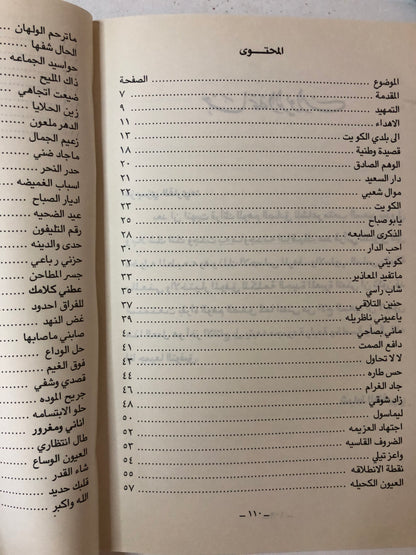 المحتوى
الموضوع الصفحة
المقدمة ٧
التمهيد ٩
الاهداء ١١
الى بلدي الكويت ١٣
قصيدة وطنية ١٥
الوهم الصادق ٢٠
دار السعيد ٢١
موال شعبي ٢٢
الكويت ٢٣
يابو صباح ٢٥
الذكرى السابعه ٢٨
احب الدار ٣٠
كويتي ٣٢
ماتفيد المعاذير ٣٣
شاب راني ٣٥
حنين التلاقي ٣٧
ياعيوني ناظريله ٣٩
ماني بصاحي ٤٠
دافع الصمت ٤١
لا لا تحاول ٤٣
حس طاره ٤٤
جاد الغرام ٤٦
زاد شوقي ٤٨
ليماسول ٥٠
اجتهاد العزيمه ٥٢
الضروف القاسيه ٥٣
واعز تيلي ٥٤
نقطة الانطلاقه ٥٥
العيون الكحيله ٥٧
– ١١٠ –
ماترحم الولهان
الحال شفها
حواسيد الجماعه
ذاك المليح
ضيعت اتجاهي
زين الحلايا
الدهر ملعون
زعيم الجمال
ماجاد ضني
حدر النحر
اسباب الغميضه
اديار الصباح
عيد الضحيه
رقم التليفون
حدي والدينه
حزني رباعي
جسر المطاحن
عطني كلامك
للفراق احدود
غض النهد
صابني ماصابها
حل الوداع
فوق الغيم
قصدي وشفي
جريح الموده
حلو الابتسامه
اناني ومغرور
طال انتظاري
العيون الوساع
شاء القدر
قلبك حديد
الله واكبر